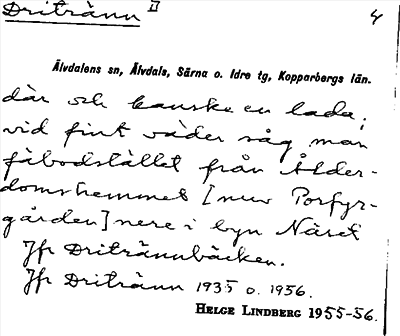 Dritränn II
4
Älvdalens sn, Älvdals, Särna o. Idre tg, Kopparbergs län.
där och kanske en lada;
vid fint väder såg man
fäbodstället från Ålder-
domshemmet [nuv Porfyr-
gården] nere i byn Näset
Jfr Dritrännbäcken.
Jfr Dritränn 1935 o. 1956.
HELGE LINDBERG 1955-56.